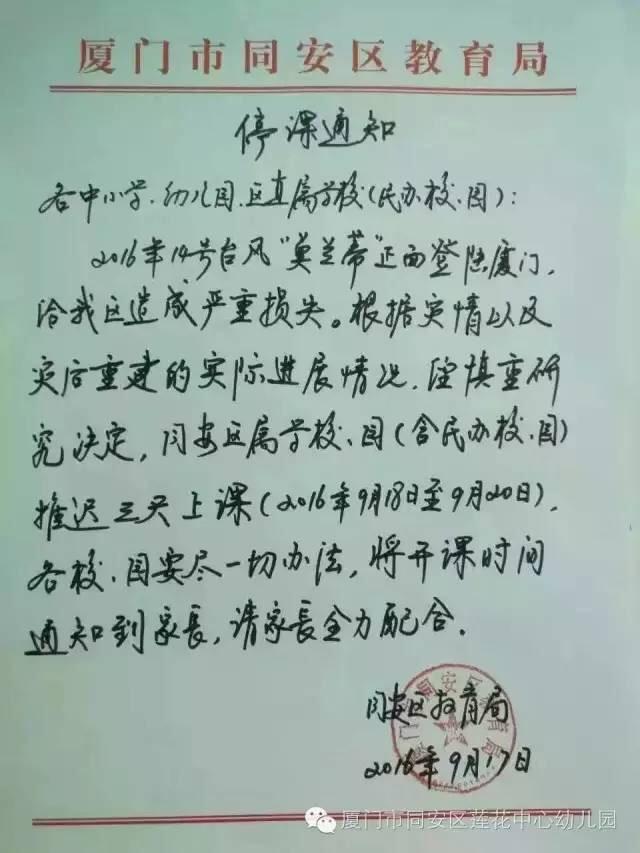 厦门市同安区教育局
停课通知
各中小学、幼儿园、区直属学校(民办校、园):
2016年14号台风“莫兰蒂”正面登陆厦门,
给我区造成严重损失。根据灾情以及
灾后重建的实际进展情况,经慎重研
究决定,同安区属学校、园(含民办校、园)
推迟三天上课(2016年9月18日至9月20日),
各校、园要尽一切办法,将开课时间
通知到家长,请家长全力配合。
同安区教育局
2016年9月17日
厦门市同安区教育局
厦门市同安区莲花中心幼儿园